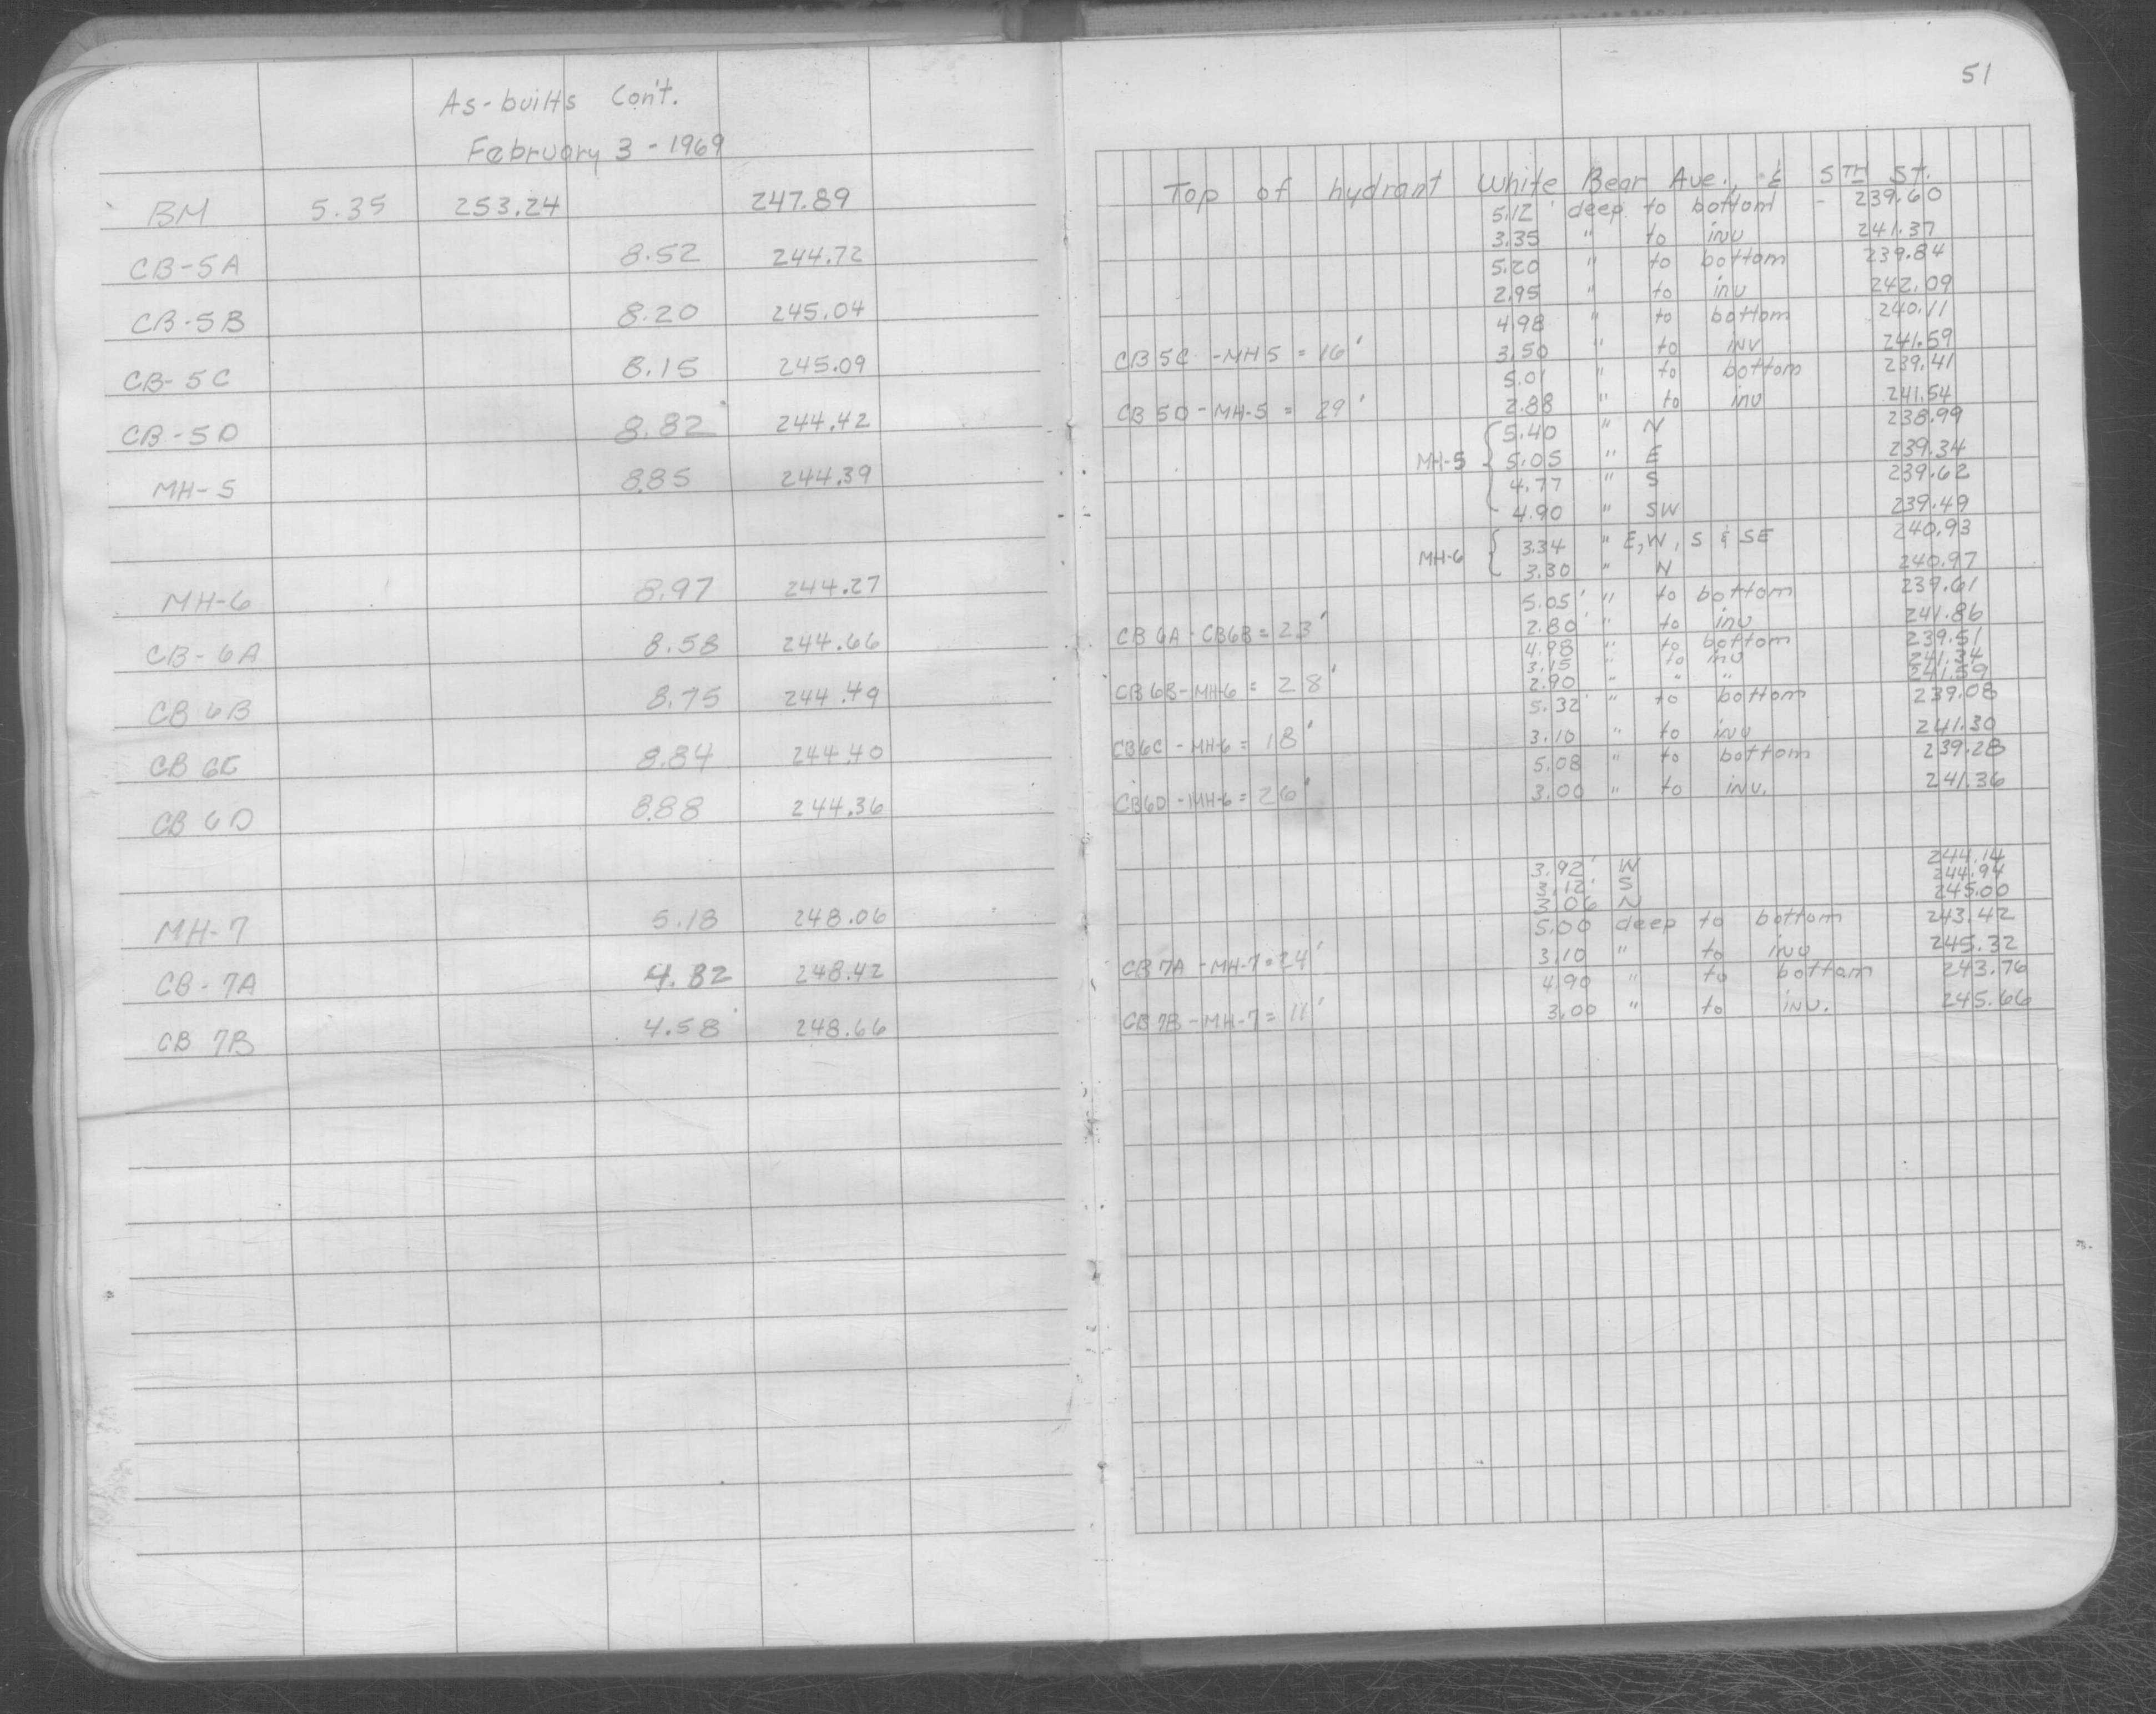 As-builts Con't.
February 3 - 1969
BM 5.35 253.24 247.89
CB-5A 8.52 244.72
CB-5B 8.20 245.04
CB-5C 8.15 245.09
CB-5D 8.82 244.42
MH-5 8.85 244.39
MH-6 8.97 244.27
CB-6A 8.58 244.66
CB 6B 8.75 244.49
CB 6C 8.84 244.40
CB 6D 8.88 244.36
MH-7 5.18 248.06
CB-7A 4.82 248.42
CB 7B 4.58 248.66
51
Top of hydrant White Bear Ave. & 5TH ST.
5.12' deep to bottom - 239.60
3.35 " to inv 241.37
5.20 " to bottom 239.84
2.95 " to inv 242.09
4.98 " to bottom 240.11
CB 5C - MH 5 = 16' 3.50 " to inv 241.59
5.01 " to bottom 239.41
CB 5D - MH-5 = 29' 2.88 " to inv 241.54
5.40 " N 238.99
MH-5 { 5.05 " E 239.34
4.77 " S 239.62
4.90 " SW 239.49
MH-6 { 3.34 " E, W, S & SE 240.93
3.30 " N 240.97
5.05' " to bottom 239.61
CB 6A - CB6B = 23' 2.80 " to inv 241.86
4.98 " to bottom 239.51
3.15 " to inv 241.34
CB 6B - MH-6 = 28' 2.90 " " " 241.59
5.32 " to bottom 239.08
CB6C - MH-6 = 18' 3.10 " to inv 241.30
5.08 " to bottom 239.28
CB6D - MH-6 = 26' 3.00 " to inv. 241.36
3.92' W 244.14
3.12' S 244.94
3.06 N 245.00
5.00 deep to bottom 243.42
CB 7A - MH-7 = 24' 3.10 " to inv 245.32
4.90 " to bottom 243.76
CB 7B - MH-7 = 11' 3.00 " to inv. 245.66